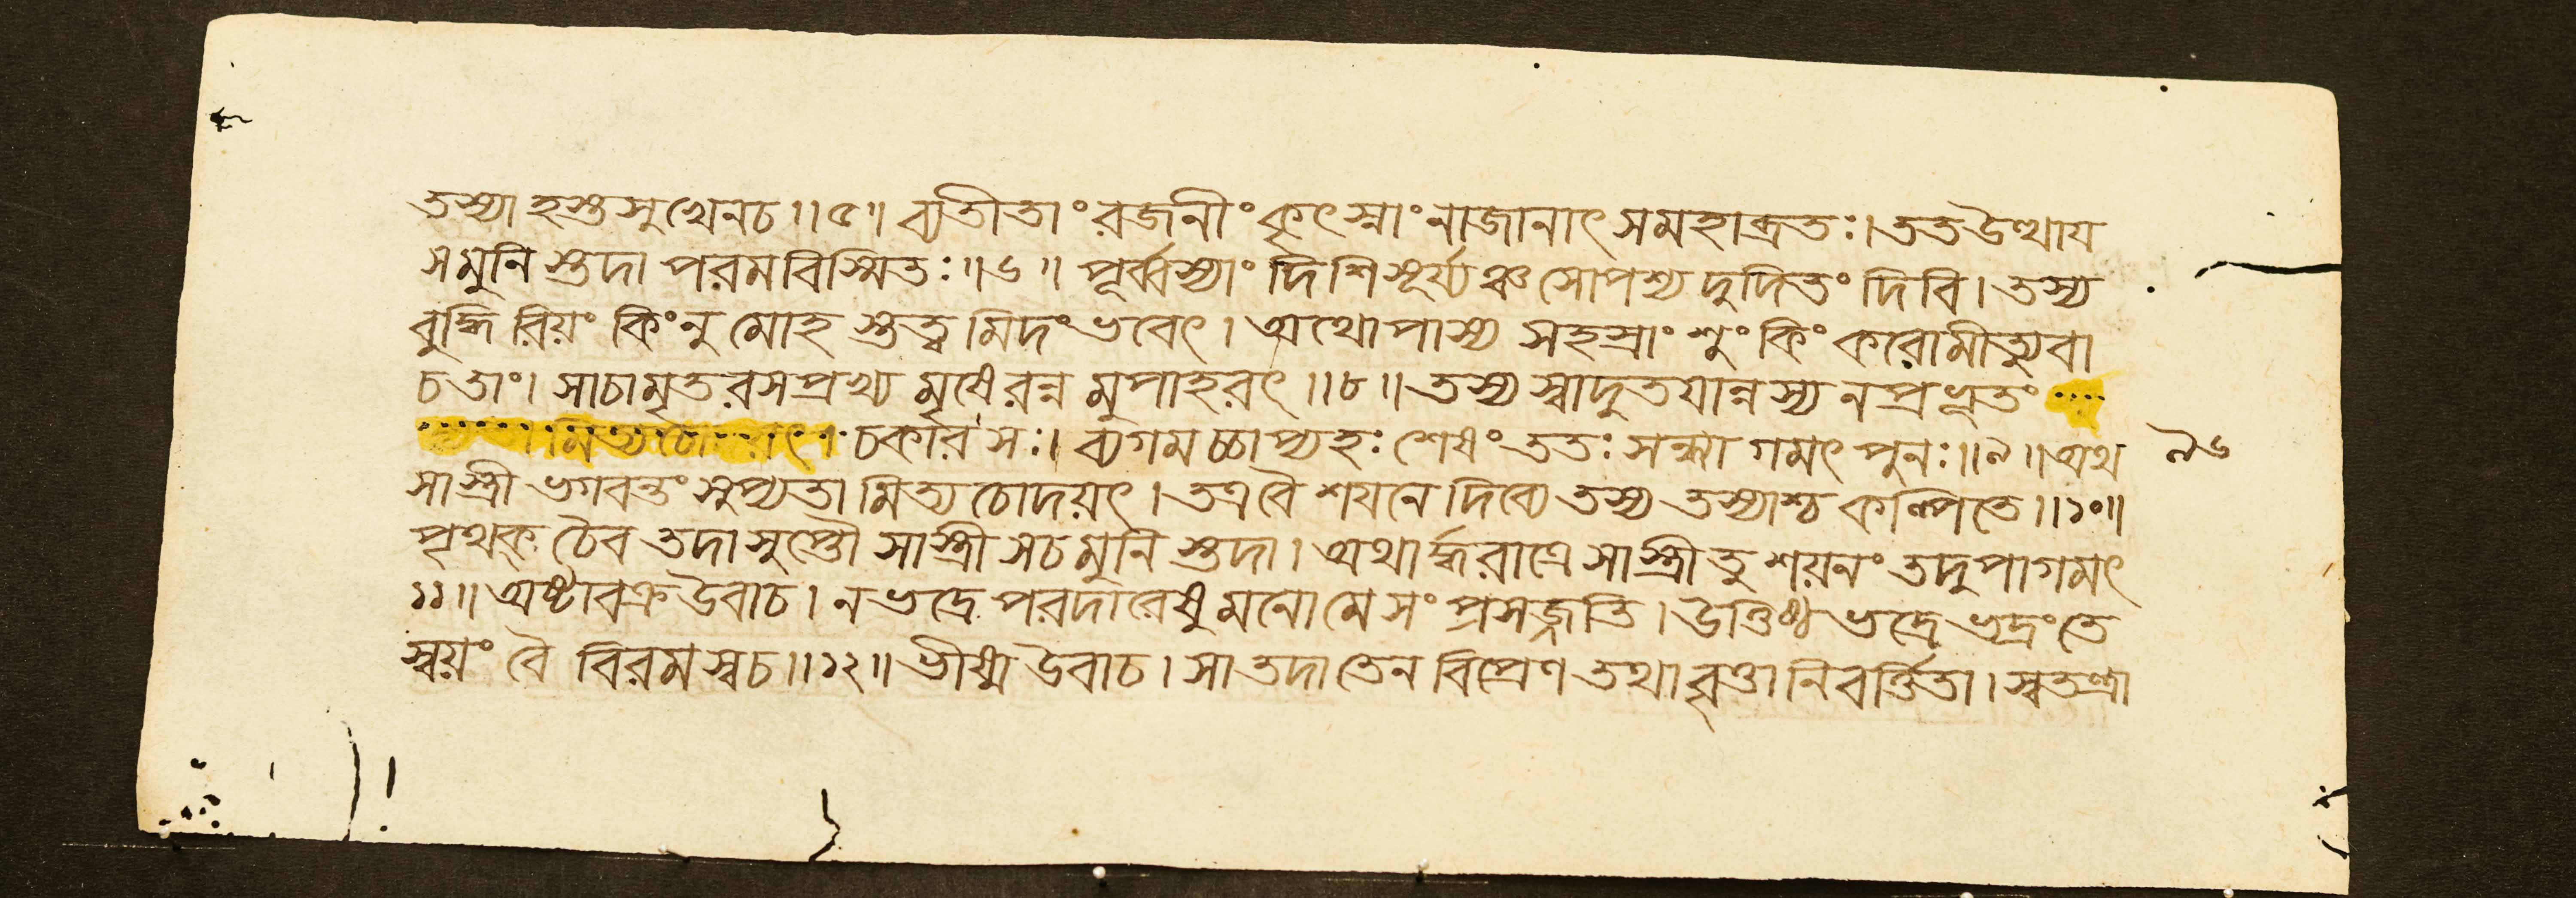 তস্যা হস্তসুখেনচ॥৫॥ ব্যতীতাং রজনীং কৃৎস্নাং নাজানাৎ সমহাব্রতঃ। তত উত্থায
সমুনি স্তদা পরমবিস্মিতঃ॥৬॥ পূর্ব্বস্যাং দিশি সূর্য্যঞ্চ সোপশ্য দুদিতং দিবি। তস্য
বুদ্ধি রিয়ং কিংনু মোহ স্তত্ত্ব মিদংভবেৎ। অথোপাস্য সহস্রাংশুং কিং করোমীত্যুবা
চ তাং। সাচামৃতরসপ্রখ্য মৃষেরন্ন মুপাহরৎ॥৮॥ তস্য স্বাদুতযান্নস্য নপ্রভূতং
চকার সঃ। ব্যগমচ্চাপ্যহঃ শেষং ততঃ সন্ধ্যা গমৎ পুনঃ॥৯॥ অথ
৯৬
সা স্ত্রী ভগবন্তং সুপ্যতা মিত্য চোদয়ৎ। তত্রবৈ শযনে দিব্যে তস্য তস্যাশ্চ কল্পিতে॥১০॥
পৃথক্ চৈব তদা সুপ্তৌ সাস্ত্রী সচমুনি স্তদা। অথার্দ্ধরাত্রে সাস্ত্রী তু শয়নং তদুপাগমৎ
১১॥ অষ্টাবক্র উবাচ। ন ভদ্রে পরদারেষু মনো মে সংপ্রসজ্জতি। উত্তিষ্ঠ ভদ্রে ভদ্রংতে
স্বয়ং বৈ বিরমস্বচ॥১২॥ ভীষ্ম উবাচ। সা তদা তেন বিপ্রেণ তথা ধৃত্তা নিবর্ত্তিতা। স্বতন্ত্রা